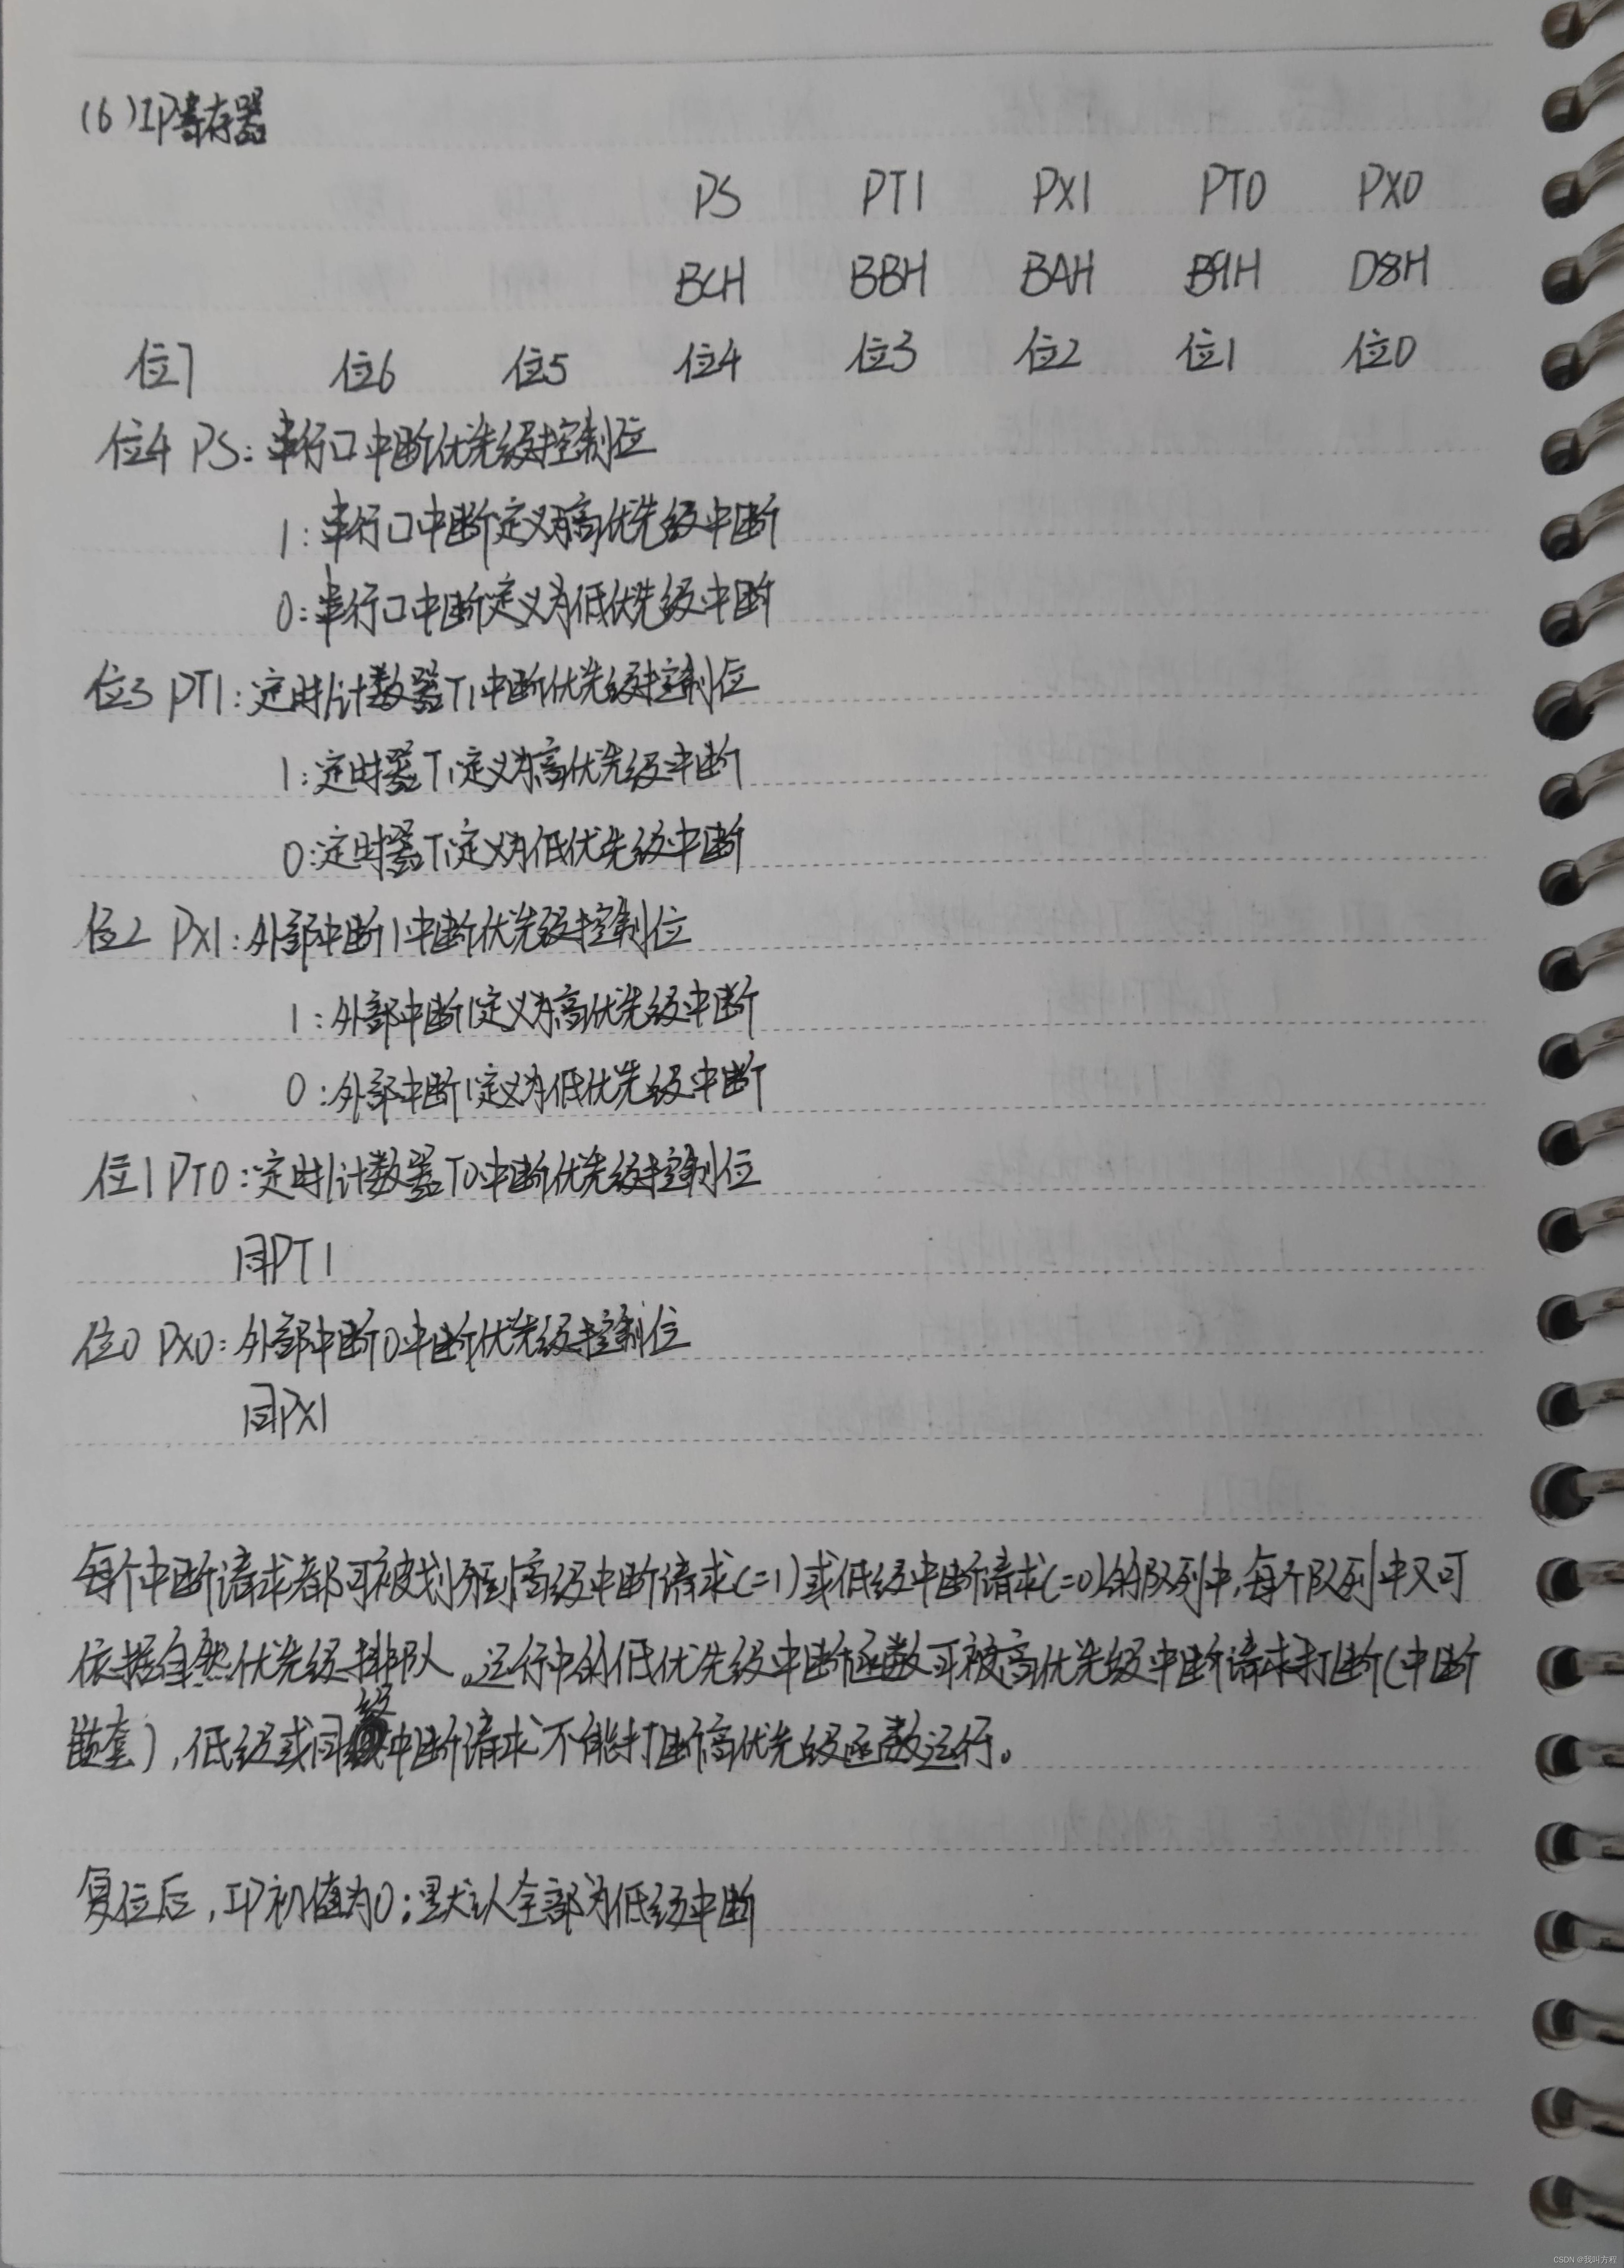 (6)IP寄存器
PS PT1 PX1 PT0 PX0
BCH BBH BAH B9H D8H
位7 位6 位5 位4 位3 位2 位1 位0
位4 PS:串行口中断优先级控制位
1:串行口中断定义为高优先级中断
0:串行口中断定义为低优先级中断
位3 PT1:定时/计数器T1中断优先级控制位
1:定时器T1定义为高优先级中断
0:定时器T1定义为低优先级中断
位2 PX1:外部中断1中断优先级控制位
1:外部中断1定义为高优先级中断
0:外部中断1定义为低优先级中断
位1 PT0:定时/计数器T0中断优先级控制位
同PT1
位0 PX0:外部中断0中断优先级控制位
同PX1
每个中断请求都可被划分到高级中断请求(=1)或低级中断请求(=0)的队列中,每个队列中又可
依据自然优先级排队。运行中的低优先级中断函数可被高优先级中断请求打断(中断
嵌套),低级或同级中断请求不能打断高优先级函数运行。
复位后,IP初值为0;默认全部为低级中断
CSDN @我叫方程